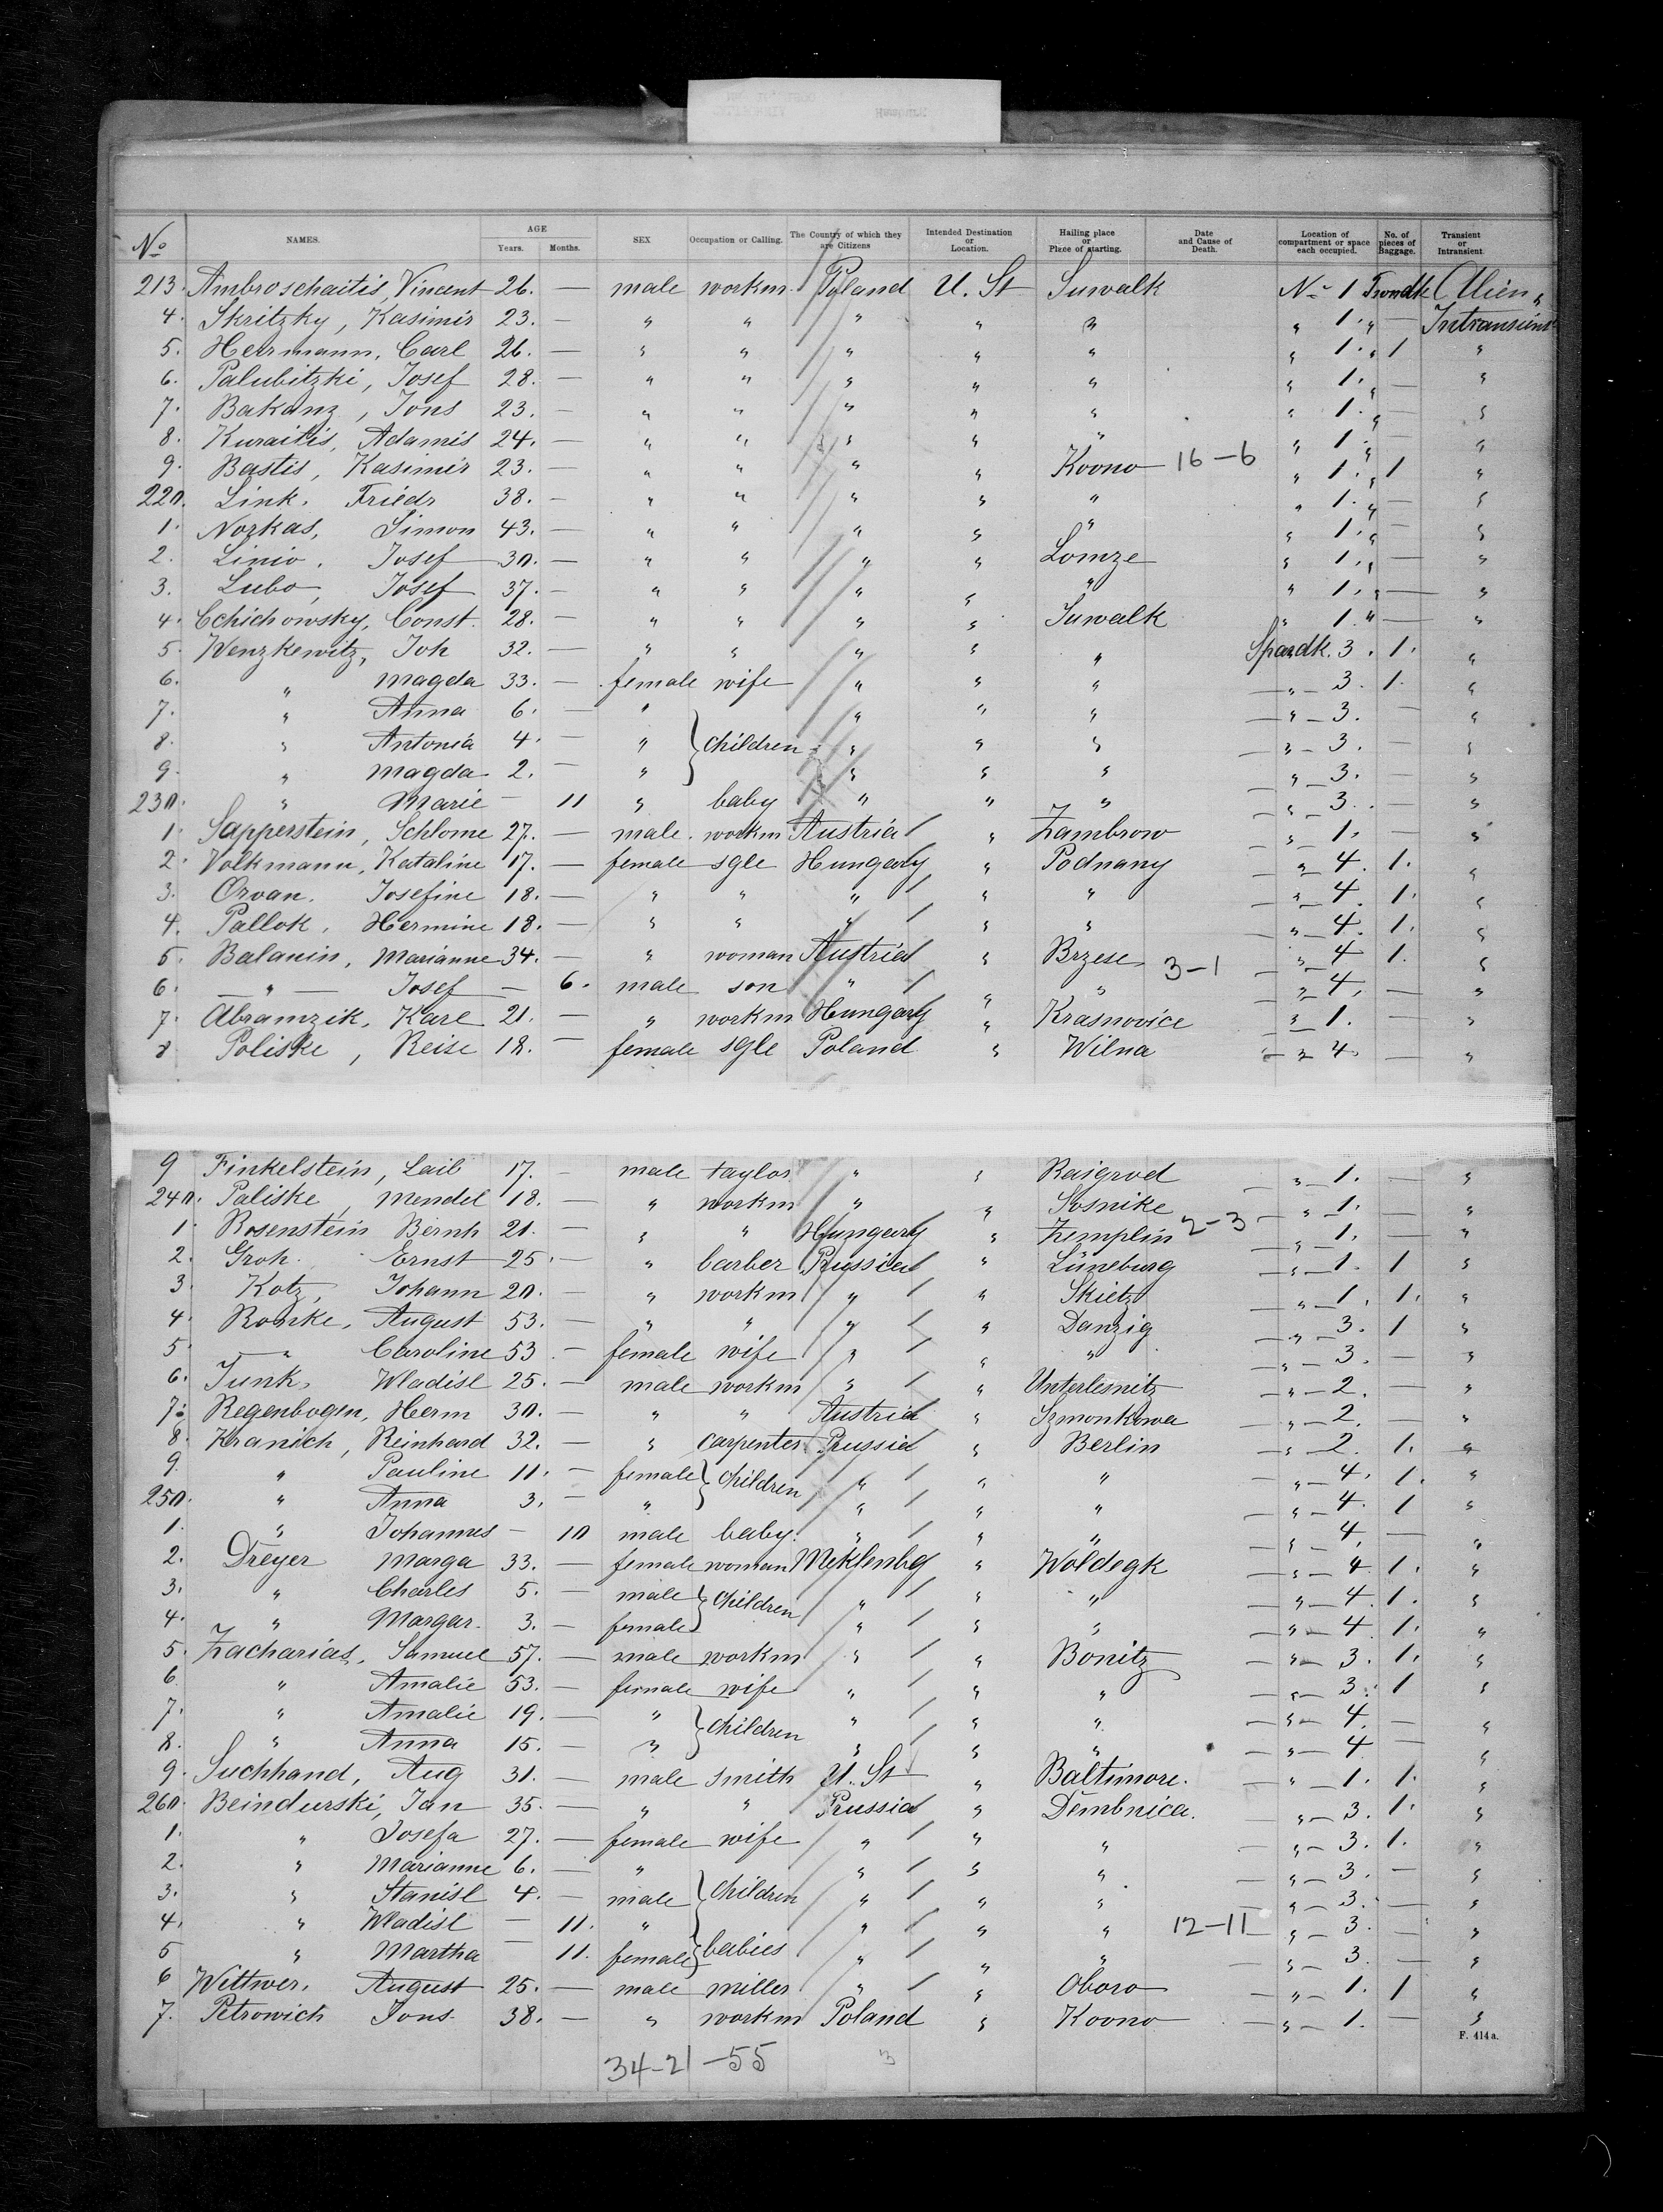 No NAMES. AGE Years. Months. SEX Occupation or Calling. The Country of which they are Citizens Intended Destination or Location. Hailing place or Place of starting. Date and Cause of Death. Location of compartment or space each occupied. No. of pieces of Baggage. Transient or Intransient.
213. Ambroschaitis, Vincent 26. — male workm. Poland U. St Suwalk No 1 Frondk Alien „
4. Skritzky, Kasimir 23. — „ „ „ „ „ „ 1. „ — Intransient
5. Herrmann, Carl 26. — „ „ „ „ „ „ 1. „ 1 „
6. Palubitzki, Josef 28. — „ „ „ „ „ „ 1. „ — „
7. Bakanz, Jons 23. — „ „ „ „ „ „ 1. „ — „
8. Kuraitis, Adamis 24. — „ „ „ „ „ „ 1. „ — „
9. Bastis, Kasimir 23. — „ „ „ „ Kovno 16-6 „ 1. „ 1 „
220. Link, Friedr 38. — „ „ „ „ „ „ 1. „ — „
1. Norkas, Simon 43. — „ „ „ „ „ „ 1. „ — „
2. Linio, Josef 30. — „ „ „ „ Lomze „ 1. „ — „
3. Lubo, Josef 37. — „ „ „ „ „ „ 1. „ — „
4. Cchichowsky, Const. 28. — „ „ „ „ Suwalk „ 1. „ — „
5. Wenzkewitz, Joh 32. — „ „ „ „ „ Spardk. 3. 1. „
6. „ Magda 33. — female wife „ „ „ — „ — 3. 1. „
7. „ Anna 6. — „ „ „ „ — „ — 3. — „
8. „ Antonia 4. — „ children „ „ „ — „ — 3. — „
9. „ Magda 2. — „ „ „ „ — „ — 3. — „
230. „ Marie — 11 „ baby „ „ „ — „ — 3. — „
1. Sapperstein, Schlome 27. — male workm Austria „ Zambrow — „ — 1. — „
2. Volkmann, Kataline 17. — female sgle Hungary „ Podnany — „ — 4. 1. „
3. Orvan, Josefine 18. — „ „ „ „ „ — „ — 4. 1. „
4. Pallok, Hermine 18. — „ „ „ „ „ — „ — 4. 1. „
5. Balanin, Marianne 34. — „ woman Austria „ Brzese 3-1 — „ — 4 1. „
6. — „ — Josef — 6. male son „ „ „ — „ — 4. — „
7. Abramzik, Karl 21. — „ workm Hungary „ Krasnovice — „ — 1. — „
8 Poliske, Reise 18. — female sgle Poland „ Wilna — „ — 4. — „
9 Finkelstein, Laib 17. — male taylor „ „ Raigrod — „ — 1. — „
240. Paliske, Mendel 18. — „ workm „ „ Sosnike — „ — 1. — „
1. Rosenstein Bernh 21. — „ „ Hungary „ Zemplin 2-3 — „ — 1. — „
2. Groh. Ernst 25. — „ barber Prussia „ Lüneburg — „ — 1. 1 „
3. Kotz, Johann 20. — „ workm „ „ Skietz — „ — 1. 1. „
4. Ronke, August 53. — „ „ „ „ Danzig — „ — 3. 1 „
5. — „ Caroline 53. — female wife „ „ „ — „ — 3. — „
6. Junk, Wladisl 25. — male workm „ „ Unterlesnitz — „ — 2. — „
7. Regenbogen, Herm 30. — „ „ Austria „ Szmonkowa — „ — 2. — „
8. Kranich, Reinhard 32. — „ carpenter Prussia „ Berlin — „ — 2. 1. „
9. „ Pauline 11. — female children „ „ „ — „ — 4. 1. „
250. „ Anna 3. — „ „ „ „ — „ — 4. 1 „
1. „ Johannes — 10 male baby. „ „ „ — „ — 4. — „
2. Dreyer Marga 33. — female woman Meklenbg „ Woldegk — „ — 4 1. „
3. „ Charles 5. — male children „ „ „ — „ — 4. 1. „
4. „ Margar. 3. — female „ „ „ — „ — 4. 1. „
5. Zacharias, Samuel 57. — male workm „ „ Bonitz — „ — 3. 1. „
6. „ Amalie 53. — female wife „ „ „ — „ — 3. 1 „
7. „ Amalie 19. — „ children „ „ „ — „ — 4. — „
8. „ Anna 15. — „ „ „ „ — „ — 4 — „
9. Suchhand, Aug 31. — male smith U. St „ Baltimore. — „ — 1. 1. „
260. Beindurski, Jan 35. — „ „ Prussia „ Dembnica. — „ — 3. 1. „
1. „ Josefa 27. — female wife „ „ „ — „ — 3. 1. „
2. „ Marianne 6. — „ children „ „ „ — „ — 3. — „
3. „ Stanisl 4. — male „ „ „ — „ — 3. — „
4. „ Wladisl — 11. „ babies „ „ „ 12-11 — „ — 3. — „
5 „ Martha — 11. female „ „ „ — „ — 3. — „
6 Wittwer, August 25. — male miller „ „ Oboro — „ — 1. 1 „
7. Petrowich Jons 38. — „ workm Poland „ Kovno — „ — 1. — „
F. 414a.
34-21-55 3